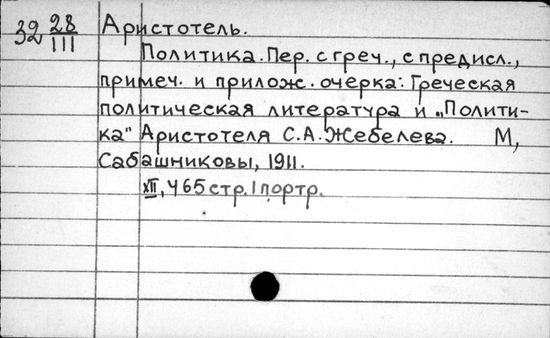 32 28/III Аристотель.
Политика. Пер. с греч., с предисл.,
примеч. и прилож. очерка: Греческая
политическая литература и „Полити-
ка" Аристотеля С.А. Жебелева. М,
Сабашниковы, 1911.
XII, 465 стр. 1 портр.